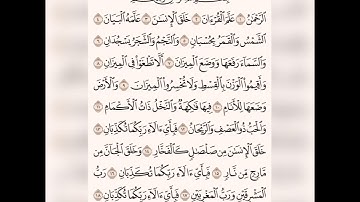 ٱلرَّحْمَٰنُ ١ عَلَّمَ ٱلْقُرْءَانَ ٢ خَلَقَ ٱلْإِنسَٰنَ ٣ عَلَّمَهُ ٱلْبَيَانَ ٤
ٱلشَّمْسُ وَٱلْقَمَرُ بِحُسْبَانٍ ٥ وَٱلنَّجْمُ وَٱلشَّجَرُ يَسْجُدَانِ ٦
وَٱلسَّمَآءَ رَفَعَهَا وَوَضَعَ ٱلْمِيزَانَ ٧ أَلَّا تَطْغَوْا۟ فِى ٱلْمِيزَانِ ٨
وَأَقِيمُوا۟ ٱلْوَزْنَ بِٱلْقِسْطِ وَلَا تُخْسِرُوا۟ ٱلْمِيزَانَ ٩ وَٱلْأَرْضَ
وَضَعَهَا لِلْأَنَامِ ١٠ فِيهَا فَٰكِهَةٌ وَٱلنَّخْلُ ذَاتُ ٱلْأَكْمَامِ ١١
وَٱلْحَبُّ ذُو ٱلْعَصْفِ وَٱلرَّيْحَانُ ١٢ فَبِأَىِّ ءَالَآءِ رَبِّكُمَا تُكَذِّبَانِ ١٣
خَلَقَ ٱلْإِنسَٰنَ مِن صَلْصَٰلٍ كَٱلْفَخَّارِ ١٤ وَخَلَقَ ٱلْجَآنَّ مِن
مَّارِجٍ مِّن نَّارٍ ١٥ فَبِأَىِّ ءَالَآءِ رَبِّكُمَا تُكَذِّبَانِ ١٦ رَبُّ
ٱلْمَشْرِقَيْنِ وَرَبُّ ٱلْمَغْرِبَيْنِ ١٧ فَبِأَىِّ ءَالَآءِ رَبِّكُمَا تُكَذِّبَانِ ١٨